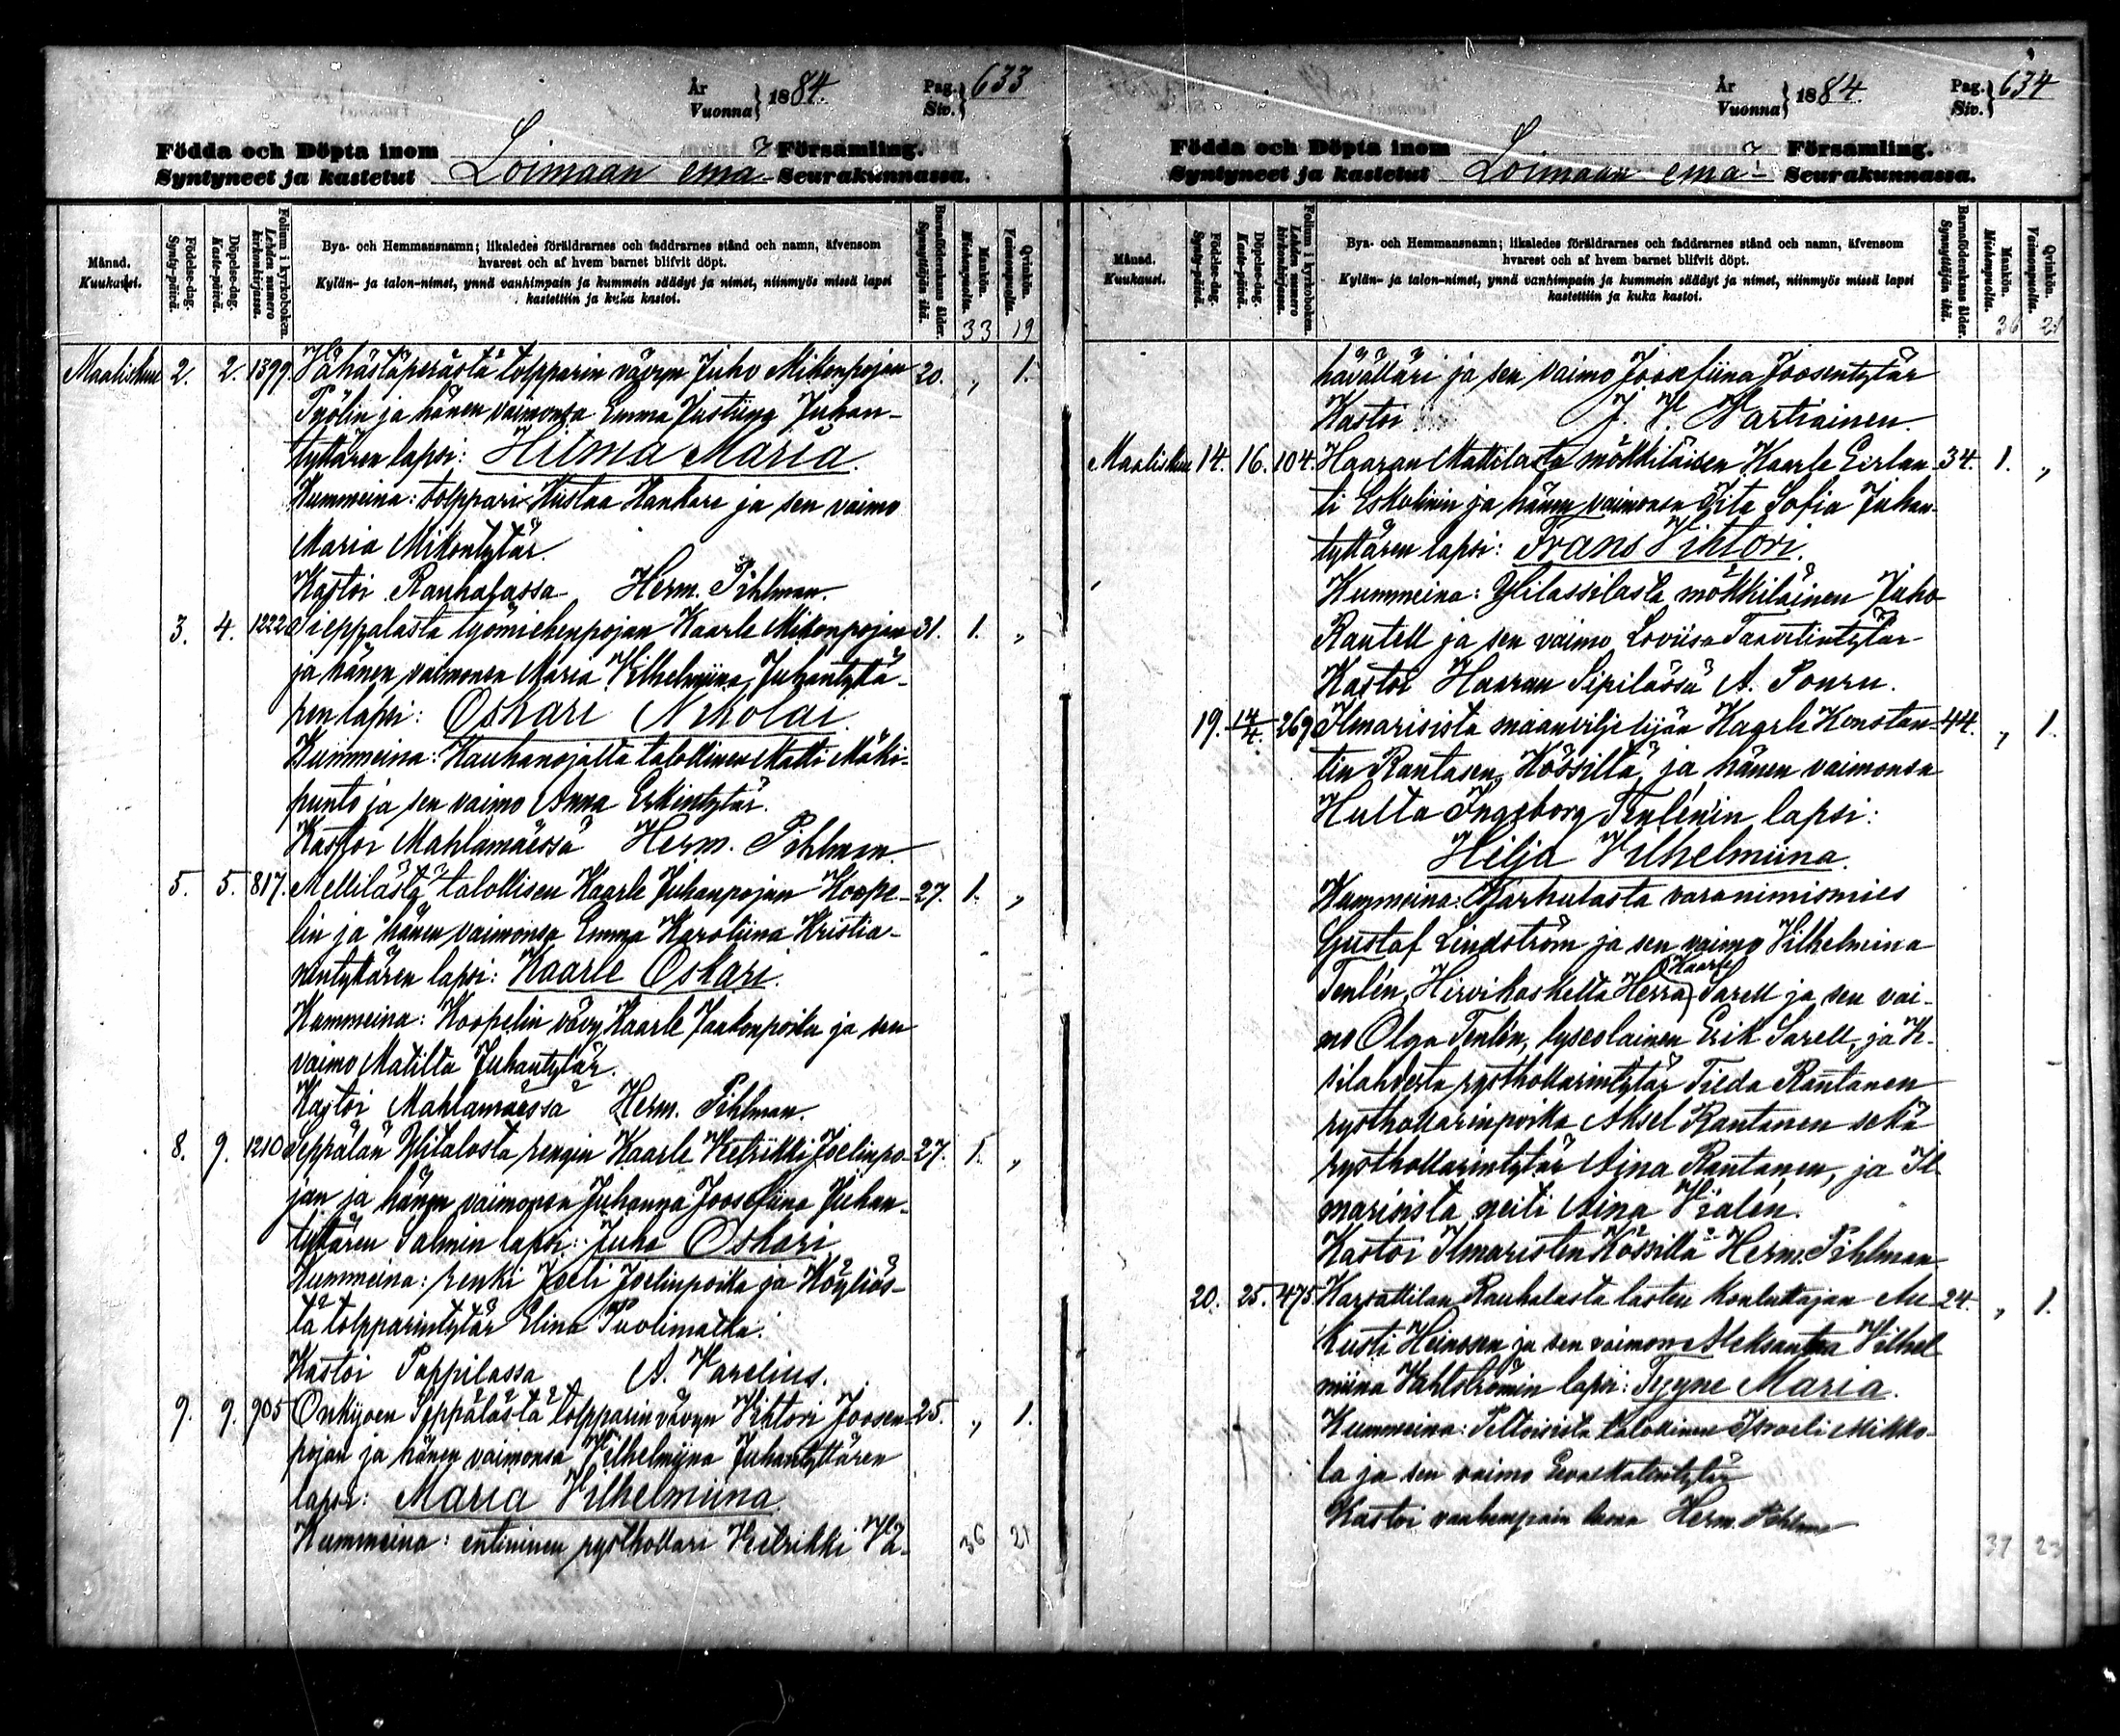 År
Vuonna } 1884.
Pag.
Siv. } 633
Födda och Döpta inom
Syntyneet ja kastetut
Loimaan emä-
Församling.
Seurakunnassa.
Månad.
Kuukausi.
Födelse-dag.
Synty-päivä.
Döpelse-dag.
Kaste-päivä.
Folium i kyrkoboken.
Lehden numero
kirkonkirjassa.
Bya- och Hemmansnamn; likaledes föräldrarnes och faddrarnes stånd och namn, äfvensom
hvarest och af hvem barnet blifvit döpt.
Kylän- ja talon-nimet, ynnä vanhimpain ja kummein säädyt ja nimet, niinmyös missä lapsi
kastettiin ja kuka kastoi.
Barnaföderskans ålder.
Synnyttäjän ikä.
Mankön.
Miehenpuolta.
Qvinkön.
Vaimonpuolta.
33 19
Maaliskuu 2. 2. 1399. Vähästäperästä torpparin vävyn Juho Mikonpojan 20. „ 1.
Työlin ja hänen vaimonsa Emma Justiina Juhan-
tyttären lapsi: Hilma Maria.
Kummeina: torppari Kustaa Hankare ja sen vaimo
Maria Mikontytär.
Kastoi Rauhalassa Herm. Pihlman.
3. 4. 1222 Sieppalasta työmiehenpojan Kaarle Mikonpojan 31. 1. „
ja hänen vaimonsa Maria Vilhelmiina Juhantyttä-
ren lapsi: Oskari Nikolai.
Kummeina: Kauhanojalta talollinen Matti Mäki-
punto ja sen vaimo Anna Erkintytär.
Kastoi Mahlamäessä Herm. Pihlman.
5. 5. 817. Mellilästä talollisen Kaarle Juhanpojan Koope- 27. 1. „
lin ja hänen vaimonsa Emma Karoliina Kristia-
nintyttären lapsi: Kaarle Oskari.
Kummeina: Koopelin vävy Kaarle Jaakonpoika ja sen
vaimo Matilta Juhantytär.
Kastoi Mahlamäessä Herm. Pihlman.
8. 9. 1210 Seppälän Ylitalosta rengin Kaarle Hetrikki Joelinpo- 27. 1. „
jan ja hänen vaimonsa Juhanna Joosefiina Juhan-
tyttären Salmin lapsi: Juho Oskari
Kummeina: renki Joeli Joelinpoika ja Köyliös-
tä torpparintytär Elina Puolimatka.
Kastoi Pappilassa A. Varelius.
9. 9. 905 Onkijoen Seppälästä torpparin vävyn Vihtori Joosen- 25. „ 1.
pojan ja hänen vaimonsa Vilhelmiina Juhantyttären
lapsi: Maria Vilhelmiina.
Kummeina: entininen rysthollari Hetrikki Vä-
36 21
År
Vuonna } 1884.
Pag.
Siv. } 634
Födda och Döpta inom
Syntyneet ja kastetut
Loimaan emä-
Församling.
Seurakunnassa.
Månad.
Kuukausi.
Födelse-dag.
Synty-päivä.
Döpelse-dag.
Kaste-päivä.
Folium i kyrkoboken.
Lehden numero
kirkonkirjassa.
Bya- och Hemmansnamn; likaledes föräldrarnes och faddrarnes stånd och namn, äfvensom
hvarest och af hvem barnet blifvit döpt.
Kylän- ja talon-nimet, ynnä vanhimpain ja kummein säädyt ja nimet, niinmyös missä lapsi
kastettiin ja kuka kastoi.
Barnaföderskans ålder.
Synnyttäjän ikä.
Mankön.
Miehenpuolta.
Qvinkön.
Vaimonpuolta.
36 21
hävättäri ja sen vaimo Joosefiina Joosentytär
Kastoi J. V. Martiainen.
Maaliskuu 14. 16. 104. Haaran Mattilasta mökkiläisen Kaarle Eerlan- 34. 1. „
ti Eskolinin ja hänen vaimonsa Iita Sofia Juhan-
tyttären lapsi: Frans Vihtori.
Kummeina: Ylilassilasta mökkiläinen Juho
Rautell ja sen vaimo Loviisa Taavetintytär
Kastoi Haaran Sipilässä A. Pouru.
19. 14/4. 269 Ilmarisista maanviljelijän Kaarle Konstan- 44. „ 1.
tin Rantasen Kössiltä, ja hänen vaimonsa
Hulta Ingeborg Tenlénin lapsi:
Hilja Vilhelmiina.
Kummeina: Karhulasta varanimismies
Gustaf Lindström ja sen vaimo Vilhelmina
Tenlén, Hirvikoskelta Herra Kaarle Sarell ja sen vai-
mo Olga Tenlén, lyseolainen Erik Sarell, ja K-
silahdesta rysthollarintytär Tilda Rantanen
rysthollarinpoika Aksel Rantanen sekä
rysthollarintytär Aina Rantanen, ja Il-
marisista neiti Aina Vialén.
Kastoi Ilmaristen Kössillä Herm. Pihlman
20. 25. 475 Karsattilan Rauhalasta lasten kouluttajan Au- 24. „ 1.
kusti Heinosen ja sen vaimon Aleksantra Vilhel-
miina Vahlströmin lapsi: Tyyne Maria.
Kummeina: Peltoisista talollinen Israeli Mikko-
la ja sen vaimo Eeva Matintytär
Kastoi vanhempain luona Herm. Pihlman
37 23